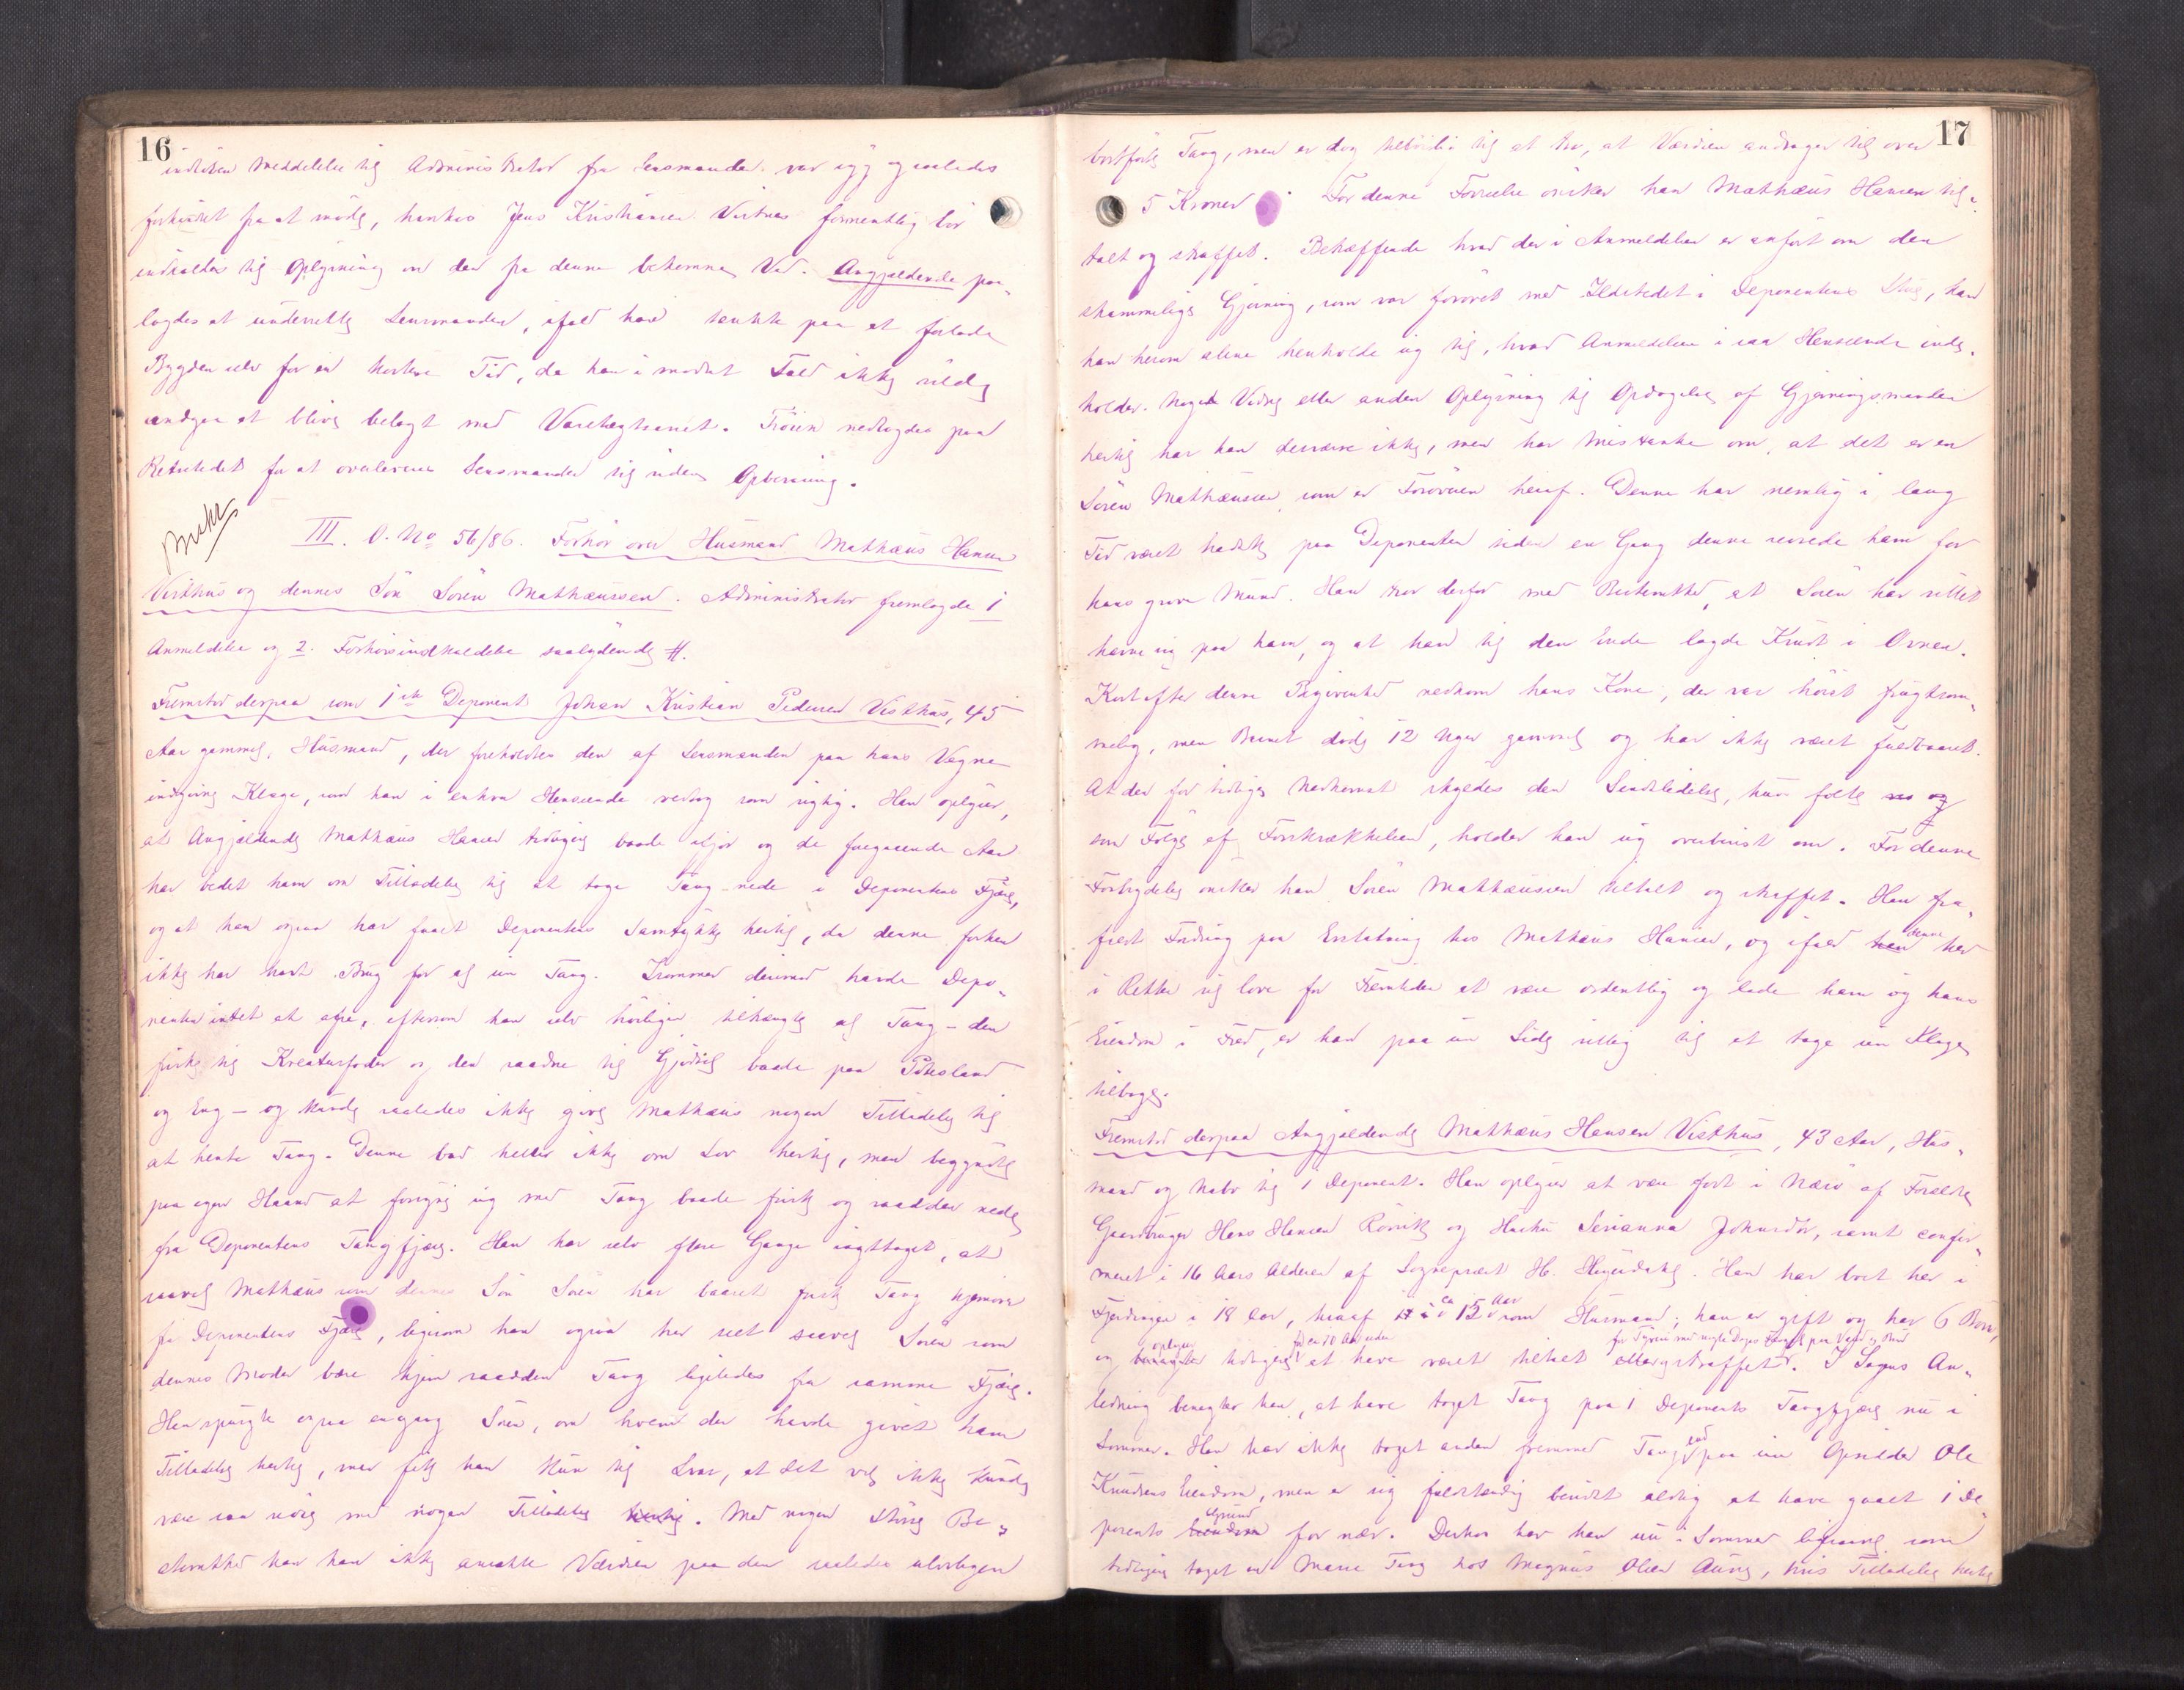 16
indløben Meddelelse til Administrator fra Lensmanden var syg og saaledes
forhindret fra at møde, hvorhos Jens Kristiansen Vistnes formentlig bør
indkaldes til Oplysning om den fra denne bekomne Ved. Angjældende paa„
lagdes at underrette Lensmanden, ifald han tænkte paa at forlade
Bygden selv for en kortere Tid, da han i modsat Fald ikke vilde
undgaa at blive belagt med Varetægtsarrest. Trøien nedlagdes paa
Retsstedet for at overleveres Lensmanden til videre Opbevaring.
III. O. No 56/86. Forhør over Husmand Mathæus Hansen
Visthus og dennes Søn Søren Mathæussen. Administrator fremlagde 1
Anmeldelse og 2. Forhørsindkaldelse saalydende #.
Fremstod derpaa som 1ste Deponent Johan Kristian Pedersen Visthus, 45
Aar gammel, Husmand, der foreholdtes den af Lensmanden paa hans Vegne
indgivne Klage, som han i enhver Henseende vedtog som rigtig. Han oplyser,
at Angjældende Mathæus Hansen tidligere baade ifjor og de foregaaende Aar
har bedet ham om Tilladelse til at tage Tang nede i Deponentens Fjære,
og at han ogsaa har faaet Deponentens Samtykke hertil, da denne forhen
ikke har havt Brug for al sin Tang. Isommer derimod havde Depo„
nenten intet at afse, eftersom han selv høiligen tiltrængte al Tang – den
friske til Kreaturfoder og den raadne til Gjødsel baade paa Potesland
og Eng – og kunde saaledes ikke give Mathæus nogen Tilladelse til
at hente Tang. Denne bad heller ikke om Lov hertil, men begyndte
paa egen Haand at forsyne sig med Tang baade frisk og raadden nede
fra Deponentens Tangfjære. Han har selv flere Gange iagttaget, at
saavel Mathæus som dennes Søn Søren har baaret frisk Tang hjemover
fra Deponentens Fjære, ligesom han ogsaa har seet saavel Søren som
dennes Moder bære hjem raadden Tang ligeledes fra samme Fjære.
Han spurgte ogsaa engang Søren, om hvem der havde givet ham
Tilladelse hertil, men fik han kun til Svar, at det vel ikke kunde
være saa nøie med nogen Tilladelse hertil. Med nogen større Be„
stemthed kan han ikke ansætte Værdien paa den saaledes ulovligen
17
bortførte Tang, men er dog tilbøielig til at tro, at Værdien andrager til over
5 Kroner. For denne Forseelse ønsker han Mathæus Hansen til„
talt og straffet. Betræffende hvad der i Anmeldelsen er anført om den
skammelige Gjerning, som var forøvet med Ildstedet i Deponentens Stue, kan
han herom alene henholde sig til, hvad Anmeldelsen i saa Henseende inde„
holder. Noget Vidne eller anden Oplysning til Opdagelse af Gjerningsmanden
hertil har han desværre ikke, men har Mistanke om, at det er en
Søren Mathæussen, som er Forøveren heraf. Denne har nemlig i lang
Tid været hadsk paa Deponenten siden en Gang denne revsede ham for
hans grove Mund. Han tror derfor med Bestemthed, at Søren har villet
hævne sig paa ham, og at han til den Ende lagde Krudt i Ovnen.
Kort efter denne Begivenhed nedkom hans Kone, der var høist frugtsom„
melig, men Barnet døde 12 Uger gammel og har ikke været fuldbaaret.
At den for tidlige Nedkomst skyldes den Sindslidelse, hun følte
som Følge af Forskrækkelsen, holder han sig overbevist om. For denne
Forbrydelse ønsker han Søren Mathæussen tiltalt og straffet. Han fra„
falder Fordring paa Erstatning hos Mathæus Hansen, og ifald han denne her
i Retten vil love for Fremtiden at være ordentlig og lade ham og hans
Eiendom i Fred, er han paa sin Side villig til at tage sin Klage
tilbage.
Fremstod derpaa Angjældende Mathæus Hansen Visthus, 43 Aar, Hus„
mand og Nabo til 1 Deponent. Han oplyser at være født i Nærø af Forældre
Gaardbruger Hans Hansen Rørvik og Hustru Serianna Johnsdtr, samt confir„
meret i 16 Aars Alderen af Sogneprest H. . Han har boet her i
Fjerdingen i 18 Aar, heraf i ca 15 Aar som Husmand; han er gift og har 6 Børn,
og oplyser tidligere for ca 10 Aar siden at have været tiltalt eller straffet for Tyveri med nogle Dages Fængsel paa Vand og Brød. I Sagens An„
ledning benægter han, at have taget Tang paa 1 Deponents Tangfjære nu i
Sommer. Han har ikke taget anden fremmed Tang end paa sin Opsidder Ole
Knudsens Eiendom, men er sig fuldstændig bevidst aldrig at have gaaet 1 De„
ponents Eiendom Grund for nær. Derhos har han nu i Sommer ligesaavel som
tidligere taget en Masse Tang hos Magnus Olsen Aune, hvis Tilladelse hertil